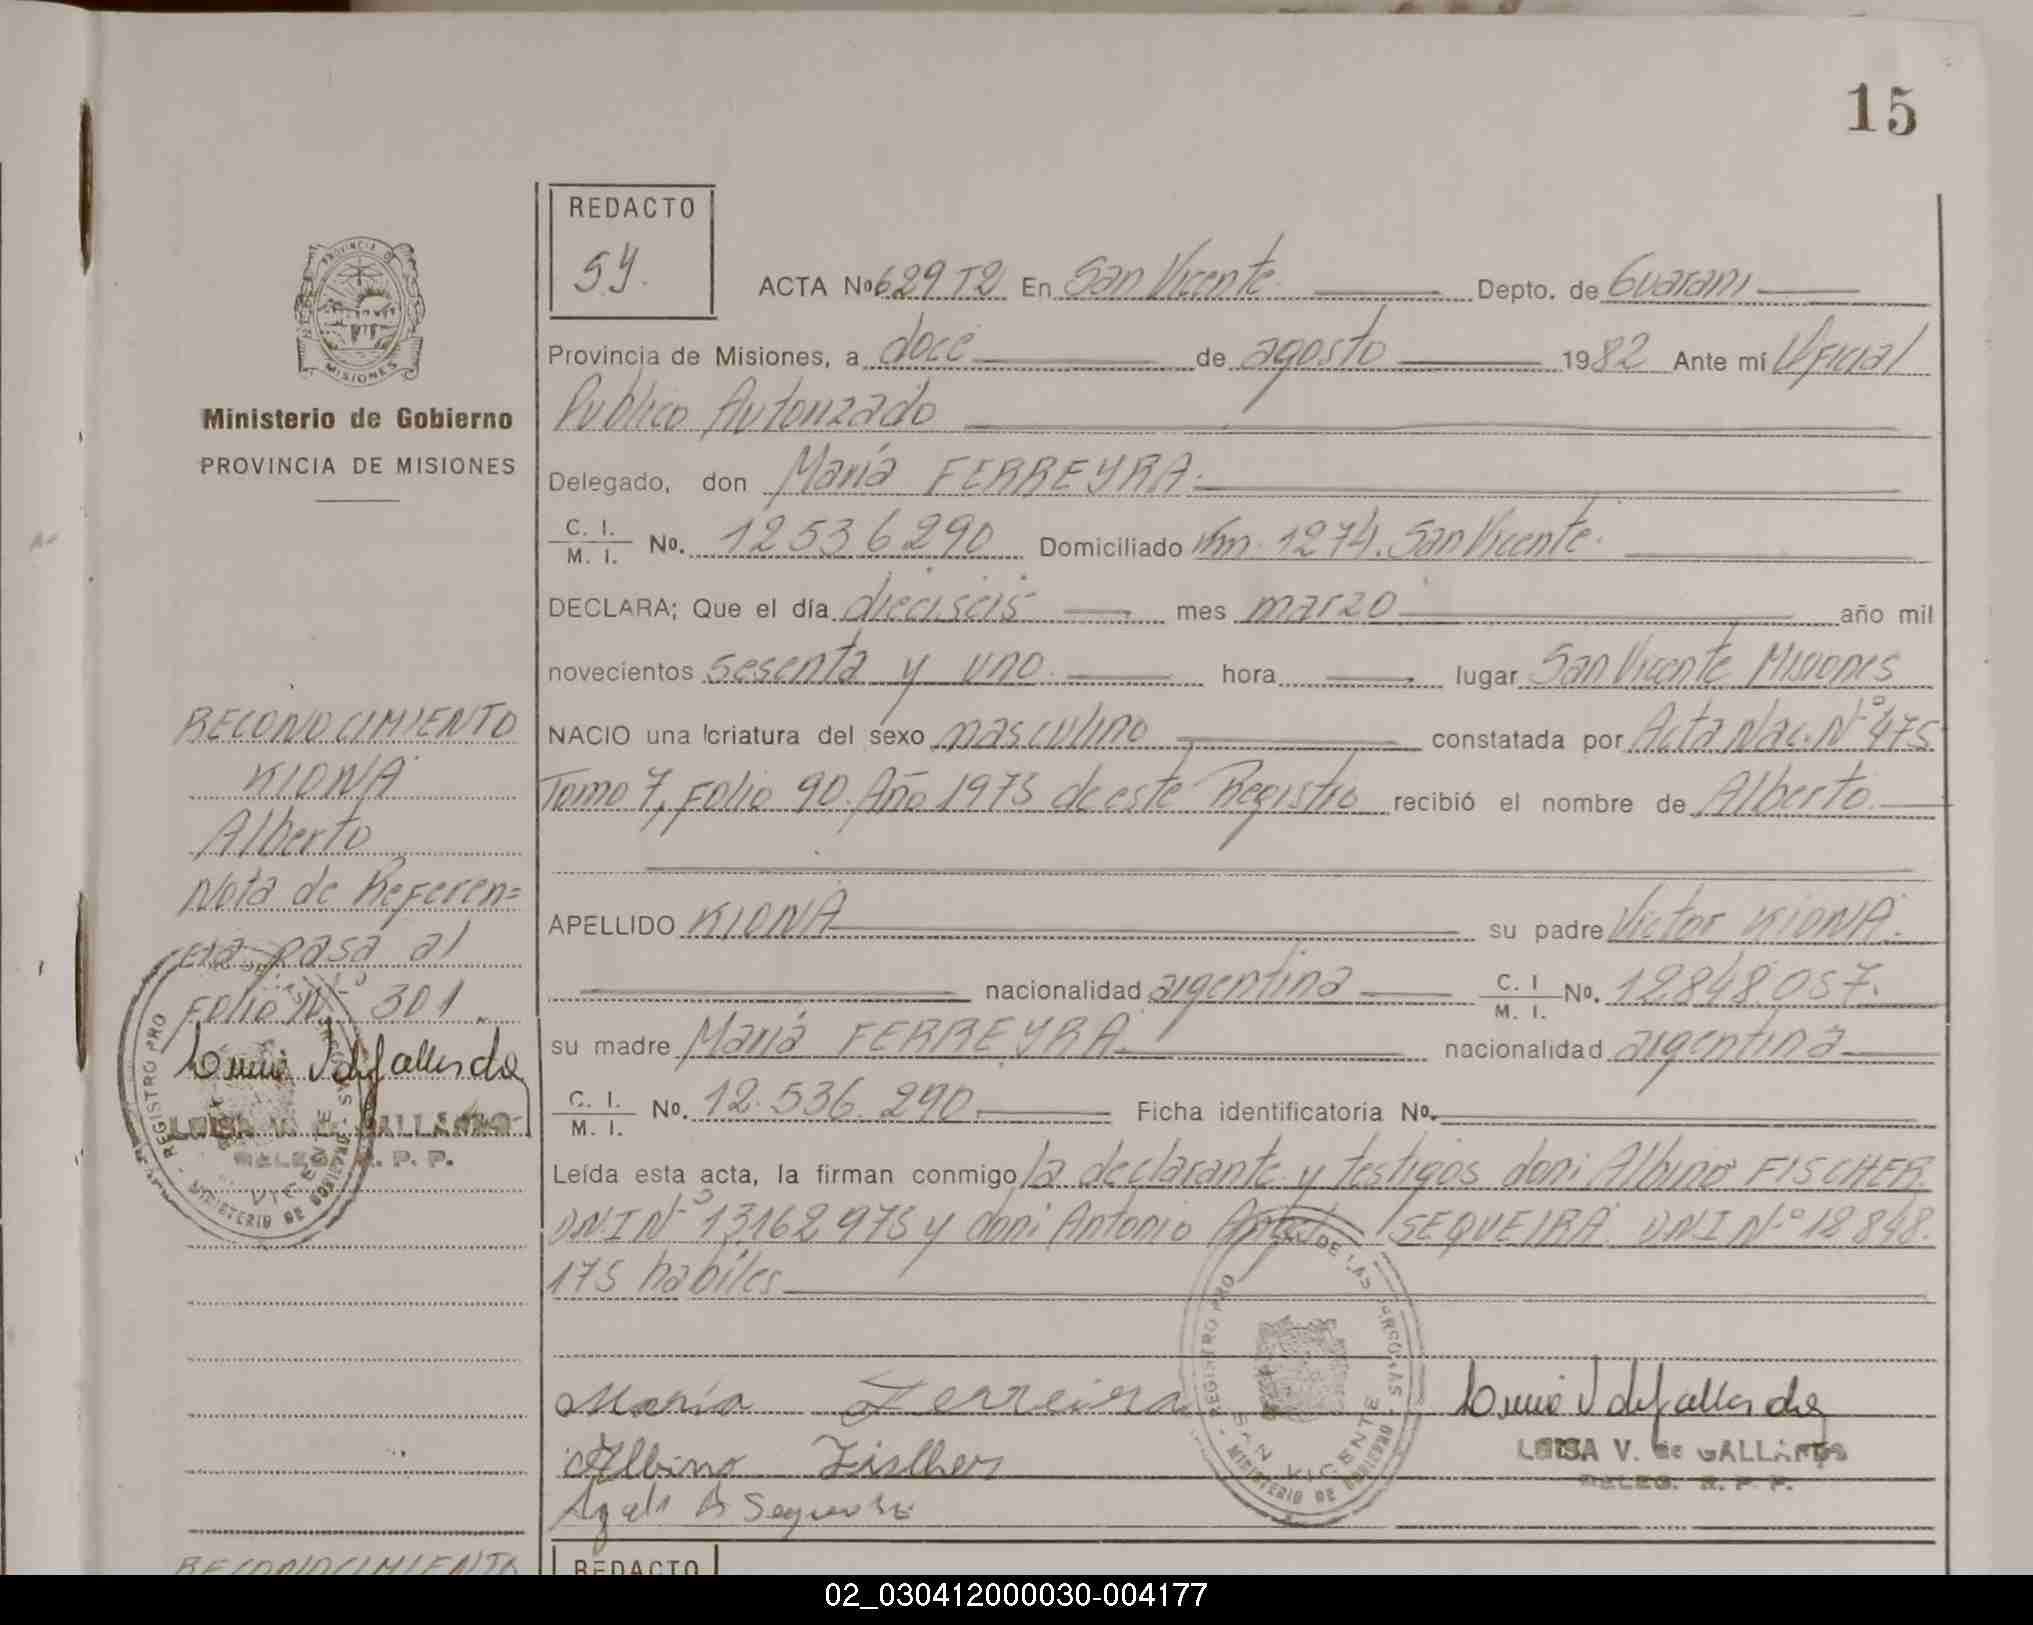 15
REDACTO
S.Y.
ACTA Nº 629 T2 En San Vicente Depto. de Guaraní
Provincia de Misiones, a doce de agosto 1982 Ante mí Oficial
Publico Autorizado
Delegado, don María FERREYRA.
C. I. / M. I. No. 12536290 Domiciliado Km. 1274. San Vicente.
DECLARA; Que el día dieciseis mes marzo año mil
novecientos sesenta y uno. hora lugar San Vicente Misiones
NACIO una criatura del sexo masculino constatada por Acta Nac. Nº 475
Tomo 7, Folio 90. Año 1975 de este Registro recibió el nombre de Alberto.
APELLIDO KIONA su padre Victor KIONA.
nacionalidad argentina C. I / M. I. No. 12848.057.
su madre María FERREYRA. nacionalidad argentina
C. I. / M. I. No. 12.536.290 Ficha identificatoria No.
Leída esta acta, la firman conmigo la declarante y testigos don: Albino FISCHER.
DNI Nº 13162975 y don: Antonio SEQUEIRA. DNI Nº 12848.
175 habiles
María Ferreira
Albino Fislher
LUISA V. de GALLARDO
DELEG. R. P. P.
REGISTRO PRO DE LAS PERSONAS
SAN VICENTE
MINISTERIO DE GOBIERNO
PROVINCIA DE
MISIONES
Ministerio de Gobierno
PROVINCIA DE MISIONES
RECONOCIMIENTO
KIONA
Alberto
Nota de Referen=
cia pasa al
Folio Nº 301.
LUISA V. de GALLARDO
DELEG. R. P. P.
REGISTRO PRO
VICENTE
MINISTERIO DE GOBIERNO
RECONOCIMIENTO
REDACTO
02_030412000030-004177